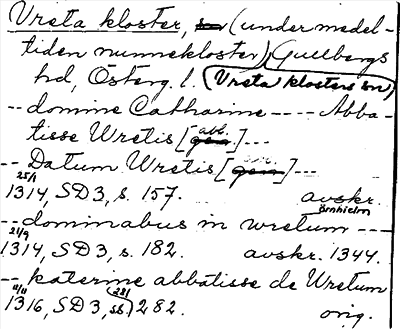 Vreta kloster, (under medel-
tiden nunnekloster), Gullbergs
hd, Österg. l. (Vreta klosters sn)
-- domine Catharine ---- Abba-
tisse Wretis [abl.] ---
-- Datum Wretis [gen.] ---
25/1
1314, SD3, s. 157. avskr.
Örnhielm
-- dominabus in wretum ---
21/9
1314, SD3, s. 182. avskr. 1344.
-- katerine abbatisse de Wretum
11/11
1316, SD3, ss. 281, 282. orig.